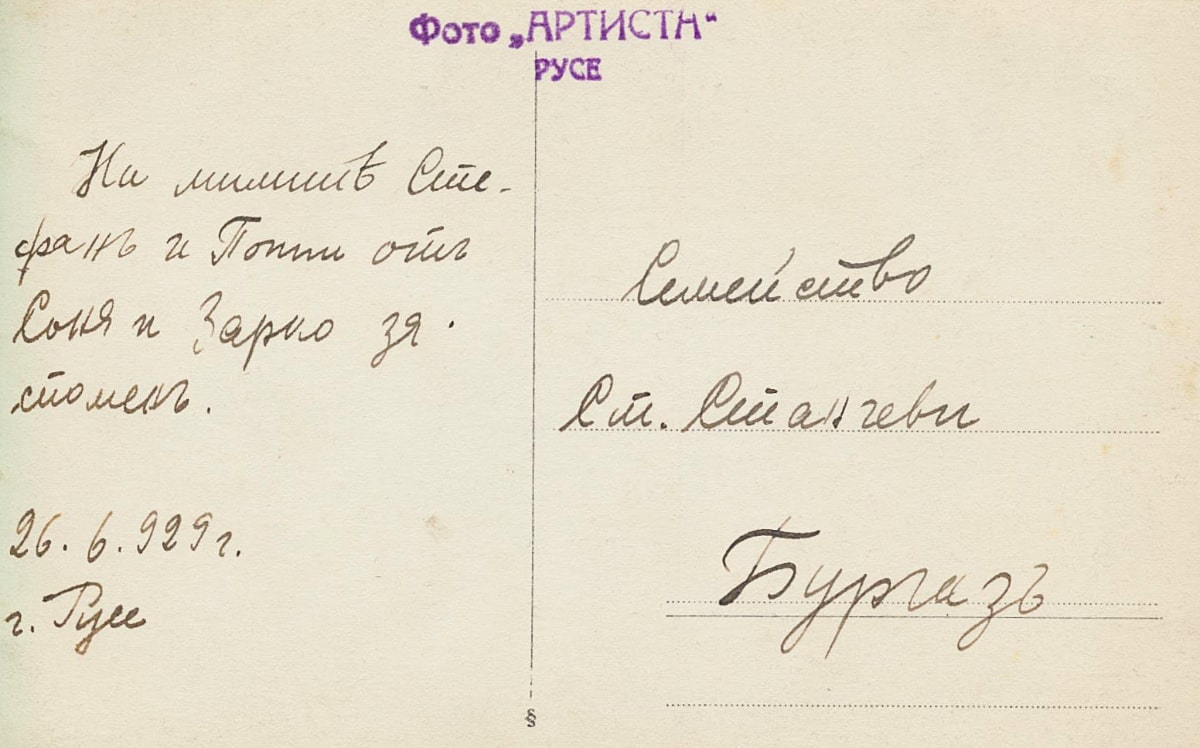 Фото „АРТИСТА“
РУСЕ
На милитѣ Сте-
фанъ и Попи отъ
Соня и Зарко за
споменъ.
26.6.929 г.
г. Русе
Семейство
Ст. Станчеви
Бургазъ
§